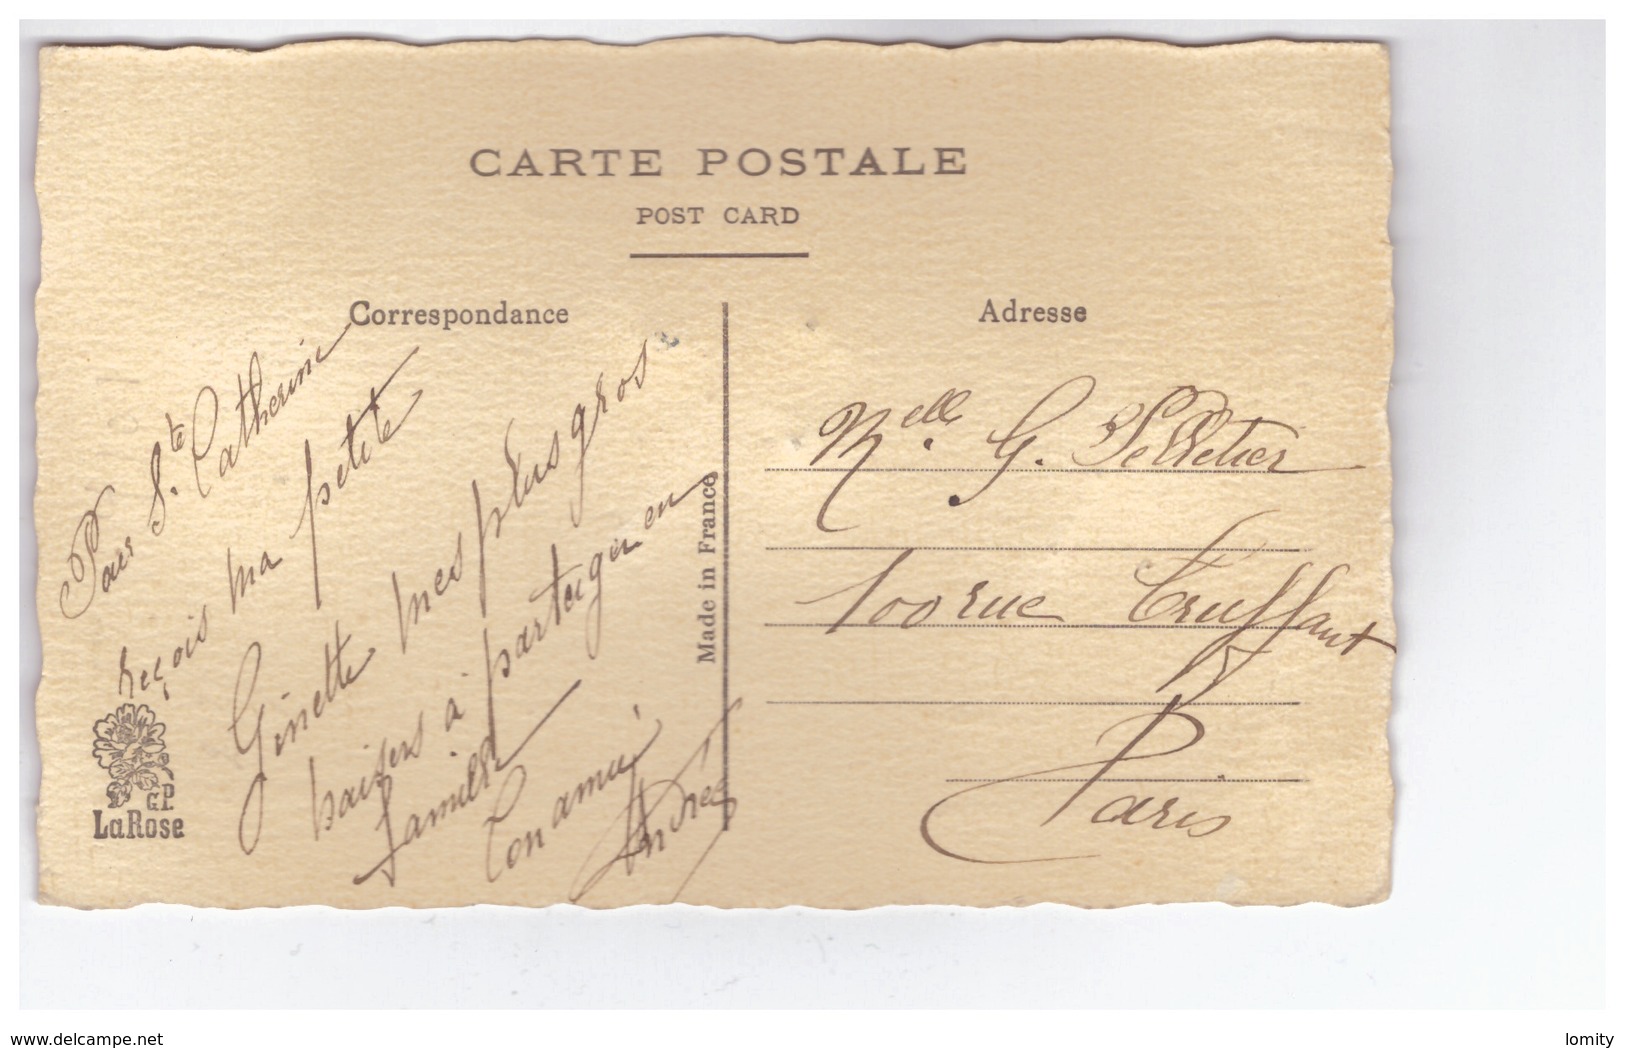 CARTE POSTALE
POST CARD
Correspondance
Adresse
Pour Ste Catherine
reçois ma petite
Ginette mes plus gros
baisers à partager en
famille
Ton amie
Andrée
Made in France
G.P.
La Rose
Melle. G. Pelletier
100 rue Truffaut
Paris
www.delcampe.net
lomity